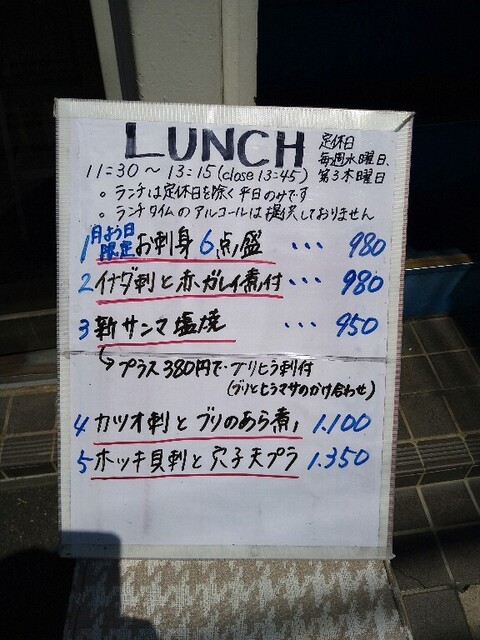 LUNCH
定休日
毎週水曜日、
第3木曜日
11:30～13:15(close 13:45)
。ランチは定休日を除く平日のみです
。ランチタイムのアルコールは提供しておりません
1 月よう日限定 お刺身6点盛 ・・・ 980
2 イナダ刺と赤ガレイ煮付・・・ 980
3 新サンマ塩焼 ・・・ 950
↳プラス380円で・ブリヒラ刺付
(ブリとヒラマサのかけ合わせ)
4 カツオ刺とブリのあら煮 1.100
5 ホッキ貝刺と穴子天プラ 1.350